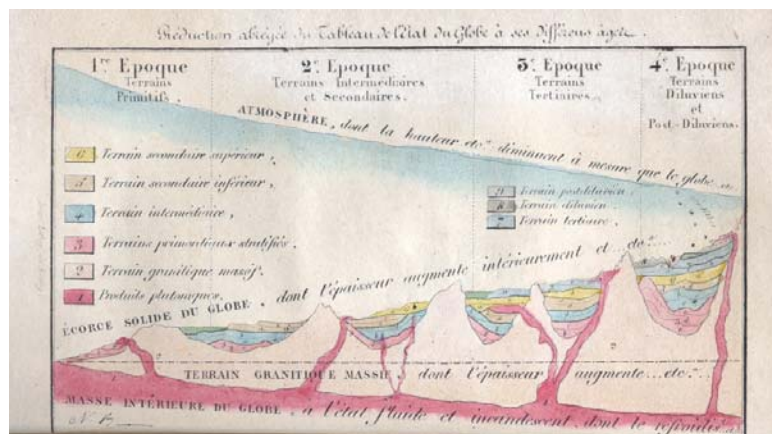 Réduction abrégée du Tableau de l'état du Globe à ses différens âges.
1re Epoque
Terrains
Primitifs.
2e Epoque
Terrains Intermédiaires
et Secondaires.
3e Epoque
Terrains
Tertiaires.
4e Epoque
Terrains
Diluviens
et
Post-Diluviens.
ATMOSPHÈRE, dont la hauteur etc. diminuent à mesure que le globe
6 Terrain secondaire supérieur,
5 Terrain secondaire inférieur,
4 Terrain intermédiaire,
3 Terrains primordiaux stratifiés.
2 Terrain granitique massif.
1 Produits plutoniques.
9 Terrain postdiluvien.
8 Terrain diluvien
7 Terrain tertiaire.
ÉCORCE SOLIDE DU GLOBE, dont l'épaisseur augmente intérieurement et etc.
TERRAIN GRANITIQUE MASSIF, dont l'épaisseur augmente...etc.
MASSE INTÉRIEURE DU GLOBE, à l'état fluide et incandescent, dont le refroidis
N.B.